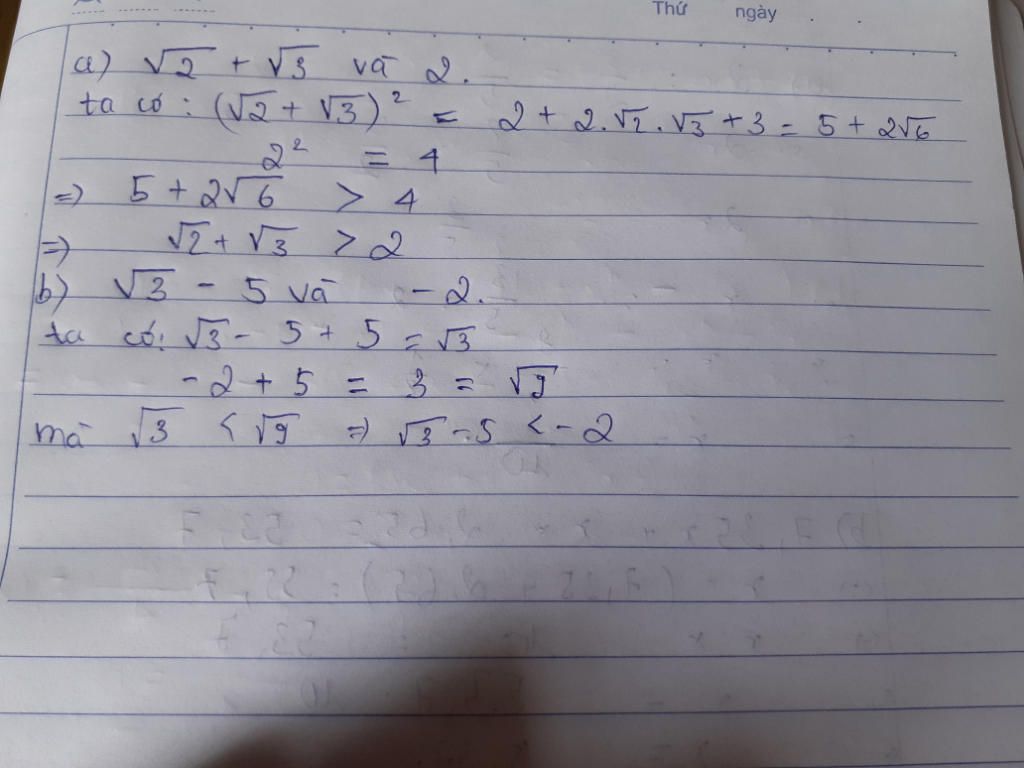 Thứ ngày . .
a) √2 + √3 và 2.
ta có : (√2 + √3)² = 2 + 2.√2.√3 + 3 = 5 + 2√6
2² = 4
=> 5 + 2√6 > 4
=> √2 + √3 > 2
b) √3 - 5 và - 2.
ta có: √3 - 5 + 5 = √3
- 2 + 5 = 3 = √9
mà √3 < √9 => √3 - 5 < - 2